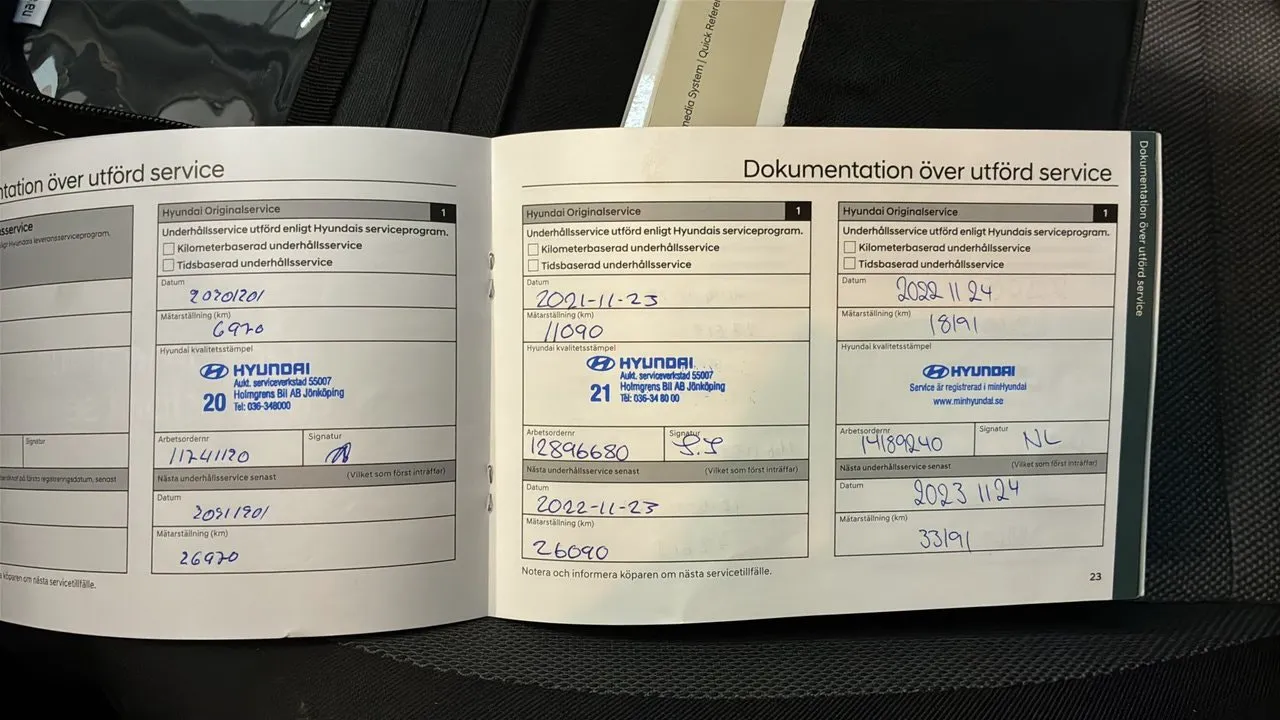 nav
media System | Quick Refere
ntation över utförd service
sservice
ligt Hyundais leveransserviceprogram.
Signatur
a köparen om nästa servicetillfälle.
Hyundai Originalservice 1
Underhållsservice utförd enligt Hyundais serviceprogram.
Kilometerbaserad underhållsservice
Tidsbaserad underhållsservice
Datum
20201201
Mätarställning (km)
6970
Hyundai kvalitetsstämpel
HYUNDAI
Aukt. serviceverkstad 55007
Holmgrens Bil AB Jönköping
20 Tel: 036-348000
Arbetsordernr
11741120
Signatur
Nästa underhållsservice senast (Vilket som först inträffar)
Datum
Mätarställning (km)
26970
Dokumentation över utförd service
Hyundai Originalservice 1
Underhållsservice utförd enligt Hyundais serviceprogram.
Kilometerbaserad underhållsservice
Tidsbaserad underhållsservice
Datum
2021-11-23
Mätarställning (km)
11090
Hyundai kvalitetsstämpel
HYUNDAI
Aukt. serviceverkstad 55007
21 Holmgrens Bil AB Jönköping
Tel: 036-34 80 00
Arbetsordernr
12896680
Signatur
S.S
Nästa underhållsservice senast (Vilket som först inträffar)
Datum
2022-11-23
Mätarställning (km)
26090
Notera och informera köparen om nästa servicetillfälle.
Hyundai Originalservice 1
Underhållsservice utförd enligt Hyundais serviceprogram.
Kilometerbaserad underhållsservice
Tidsbaserad underhållsservice
Datum
2022 11 24
Mätarställning (km)
18191
Hyundai kvalitetsstämpel
HYUNDAI
Service är registrerad i minHyundai
www.minhyundai.se
Arbetsordernr
14189240
Signatur
NL
Nästa underhållsservice senast (Vilket som först inträffar)
Datum
2023 11 24
Mätarställning (km)
33191
23
Dokumentation över utförd service